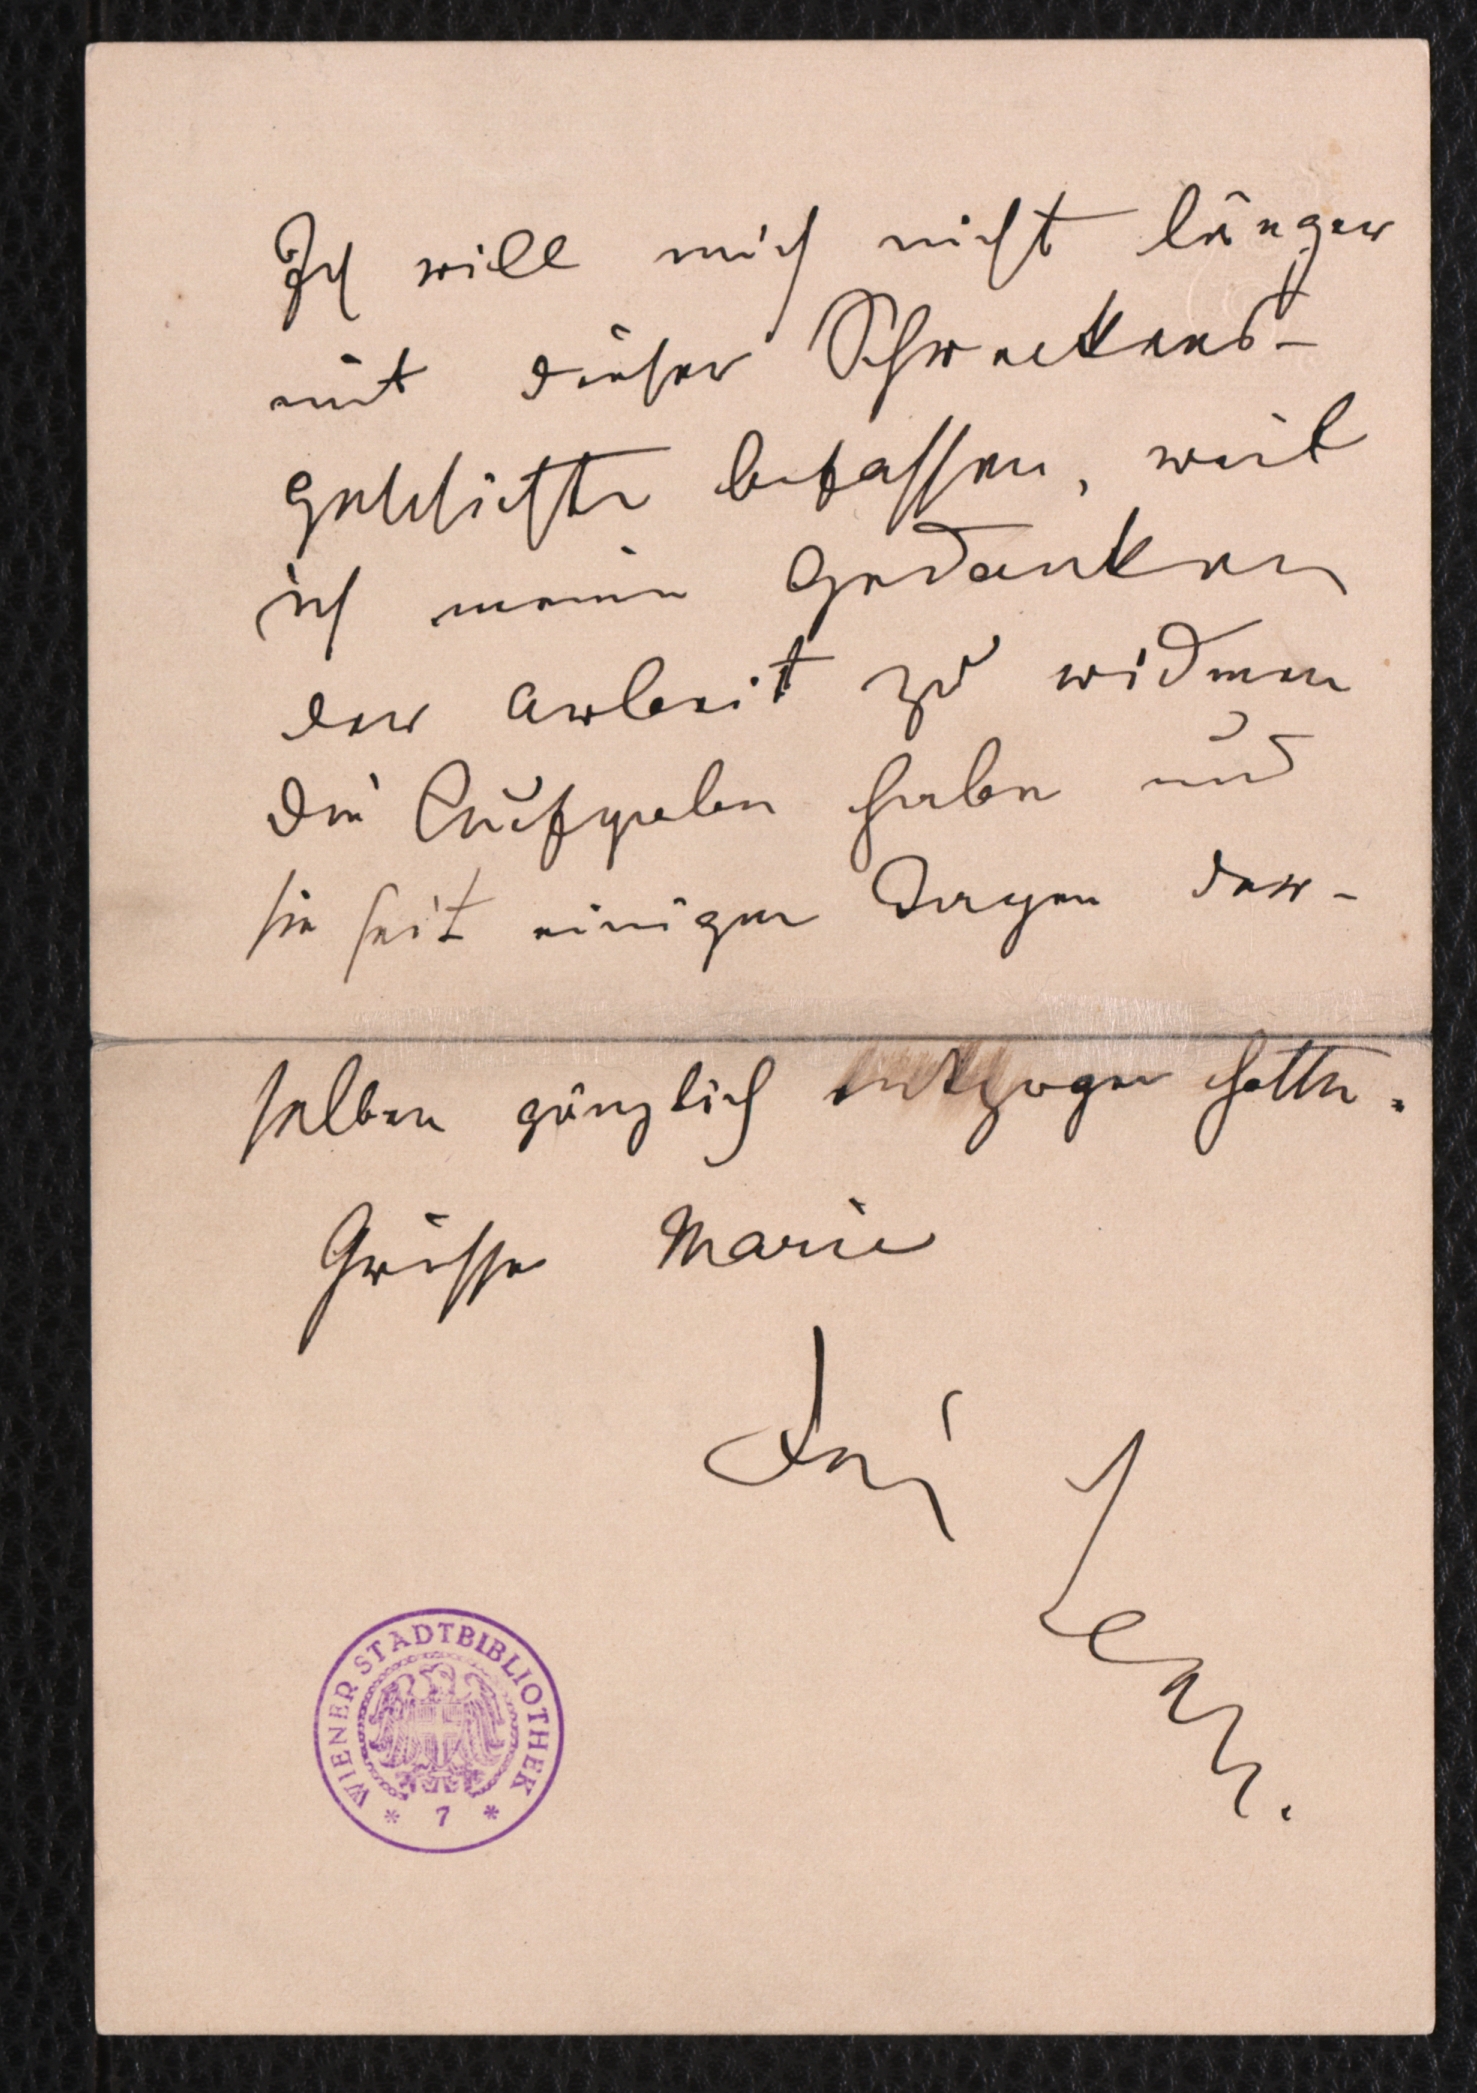 Ich will mich nicht länger
mit dieser Schreckens-
geschichte befassen, weil
ich meine Gedanken
der Arbeit zu widmen
die Aufgabe habe und
sie seit einigen Tagen der-
selben gänzlich entzogen hatte.
Grüsse Marie
Dein
WIENER STADTBIBLIOTHEK
* 7 *